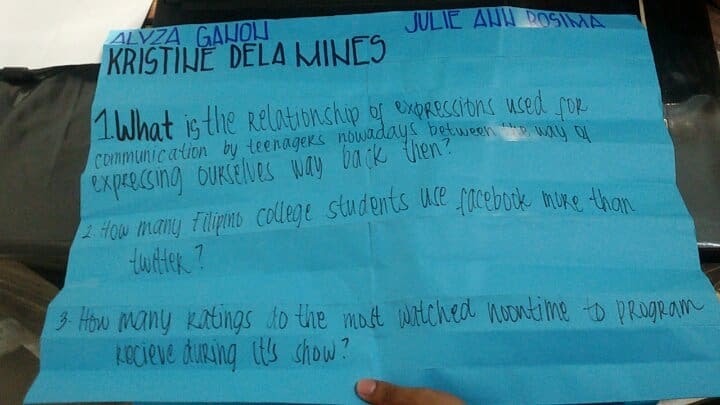 ALYZA GANON JULIE ANN ROSIMA
KRISTINE DELA MINES
1. What is the Relationship of expressions used for
communication by teenagers nowadays between the way of
expressing ourselves way back then?
2. How many Filipino college students use facebook more than
twitter?
3. How many Ratings do the most watched noontime to program
recieve during it's show?